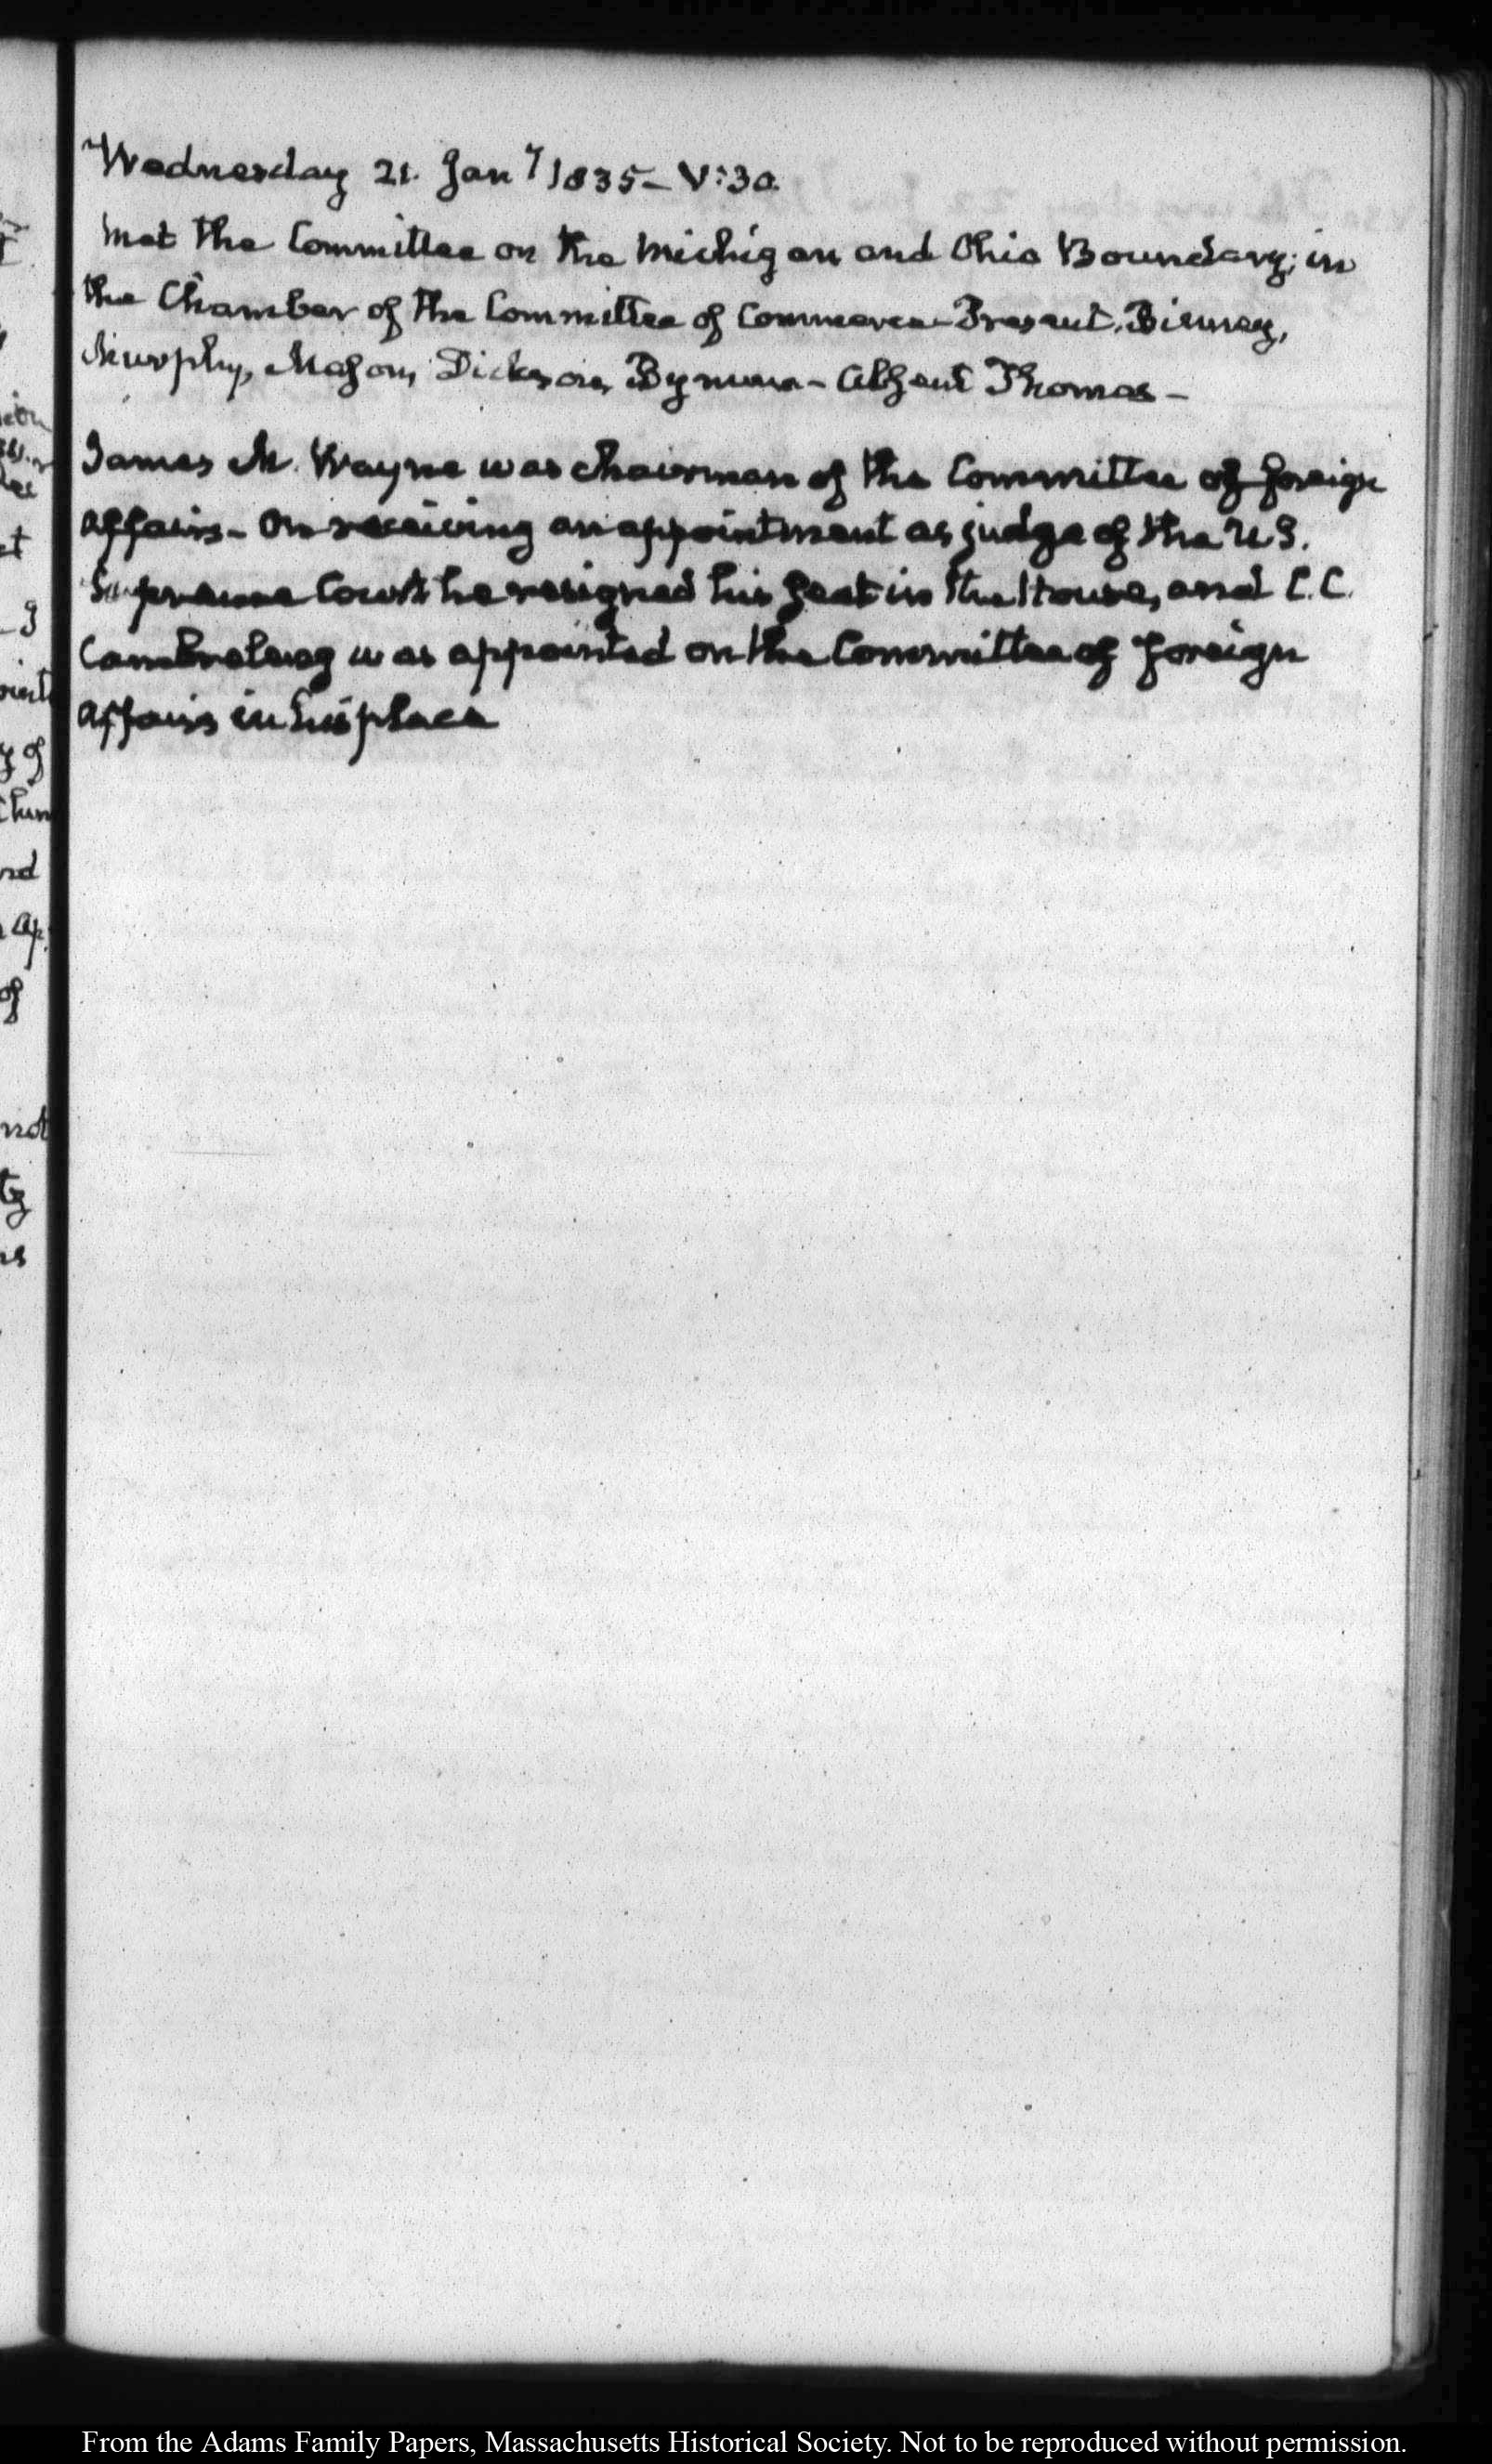 Wednesday 21. Jany 1835 — V:30.
Met the Committee on the Michigan and Ohio Boundary; in
the Chamber of the Committee of Commerce — Present, Binney,
Murphy, Mason, Dickson, Bynum — Absent Thomas —
James M. Wayne was Chairman of the Committee of foreign
affairs — On receiving an appointment as judge of the U.S.
Supreme Court he resigned his Seat in the House, and C. C.
Cambreleng was appointed on the Committee of foreign
affairs in his place
From the Adams Family Papers, Massachusetts Historical Society. Not to be reproduced without permission.